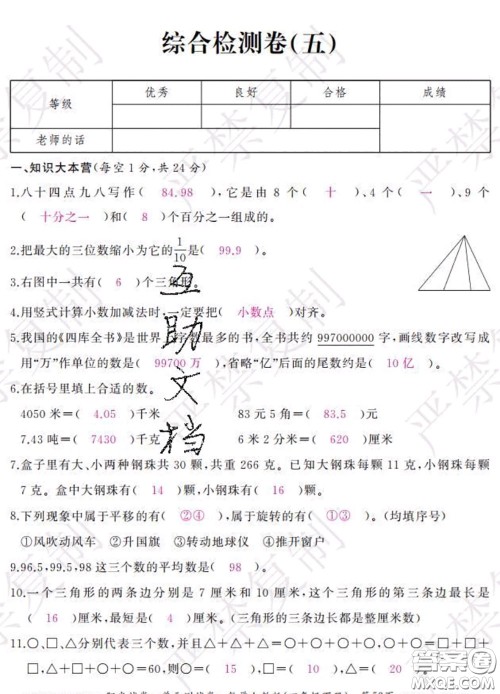 综合检测卷(五)
等级 优秀 良好 合格 成绩
老师的话
一、知识大本营(每空1分,共24分)
1.八十四点九八写作( 84.98 ),它是由8个( 十 )、4个( 一 )、9个
( 十分之一 )和( 8 )个百分之一组成的。
2.把最大的三位数缩小为它的1/10是( 99.9 )。
3.右图中一共有( 6 )个三角形。
4.用竖式计算小数加减法时,一定要把( 小数点 )对齐。
5.我国的《四库全书》是世界上字数最多的书,全书共约997000000字,画线数字改写成
用“万”作单位的数是( 99700万 ),省略“亿”后面的尾数约是( 10亿 )。
6.在括号里填上合适的数。
4050米=( 4.05 )千米 83元5角=( 83.5 )元
7.43吨=( 7430 )千克 6米2分米=( 620 )厘米
7.盒子里有大、小两种钢珠共30颗,共重266克。已知大钢珠每颗11克,小钢珠每颗
7克。盒中大钢珠有( 14 )颗,小钢珠有( 16 )颗。
8.下列现象中属于平移的有( ②④ ),属于旋转的有( ①③ )。(均填序号)
①风吹动风车 ②升国旗 ③转动地球仪 ④推开窗户
9.96.5,99.5,98这三个数的平均数是( 98 )。
10.一个三角形的两条边分别是7厘米和10厘米,这个三角形的第三条边最长是
( 16 )厘米,最短是( 4 )厘米。(三角形的三条边长都是整厘米数)
11.○、□、△分别代表三个数,并且△+△+△=○+○+○+○+○,○+○+○=□+
□,△+□+○+○=60,则○=( 15 ),□=( 10 ),△=( 20 )。
互助文档
严禁复制
答案圈
MXQE.COM